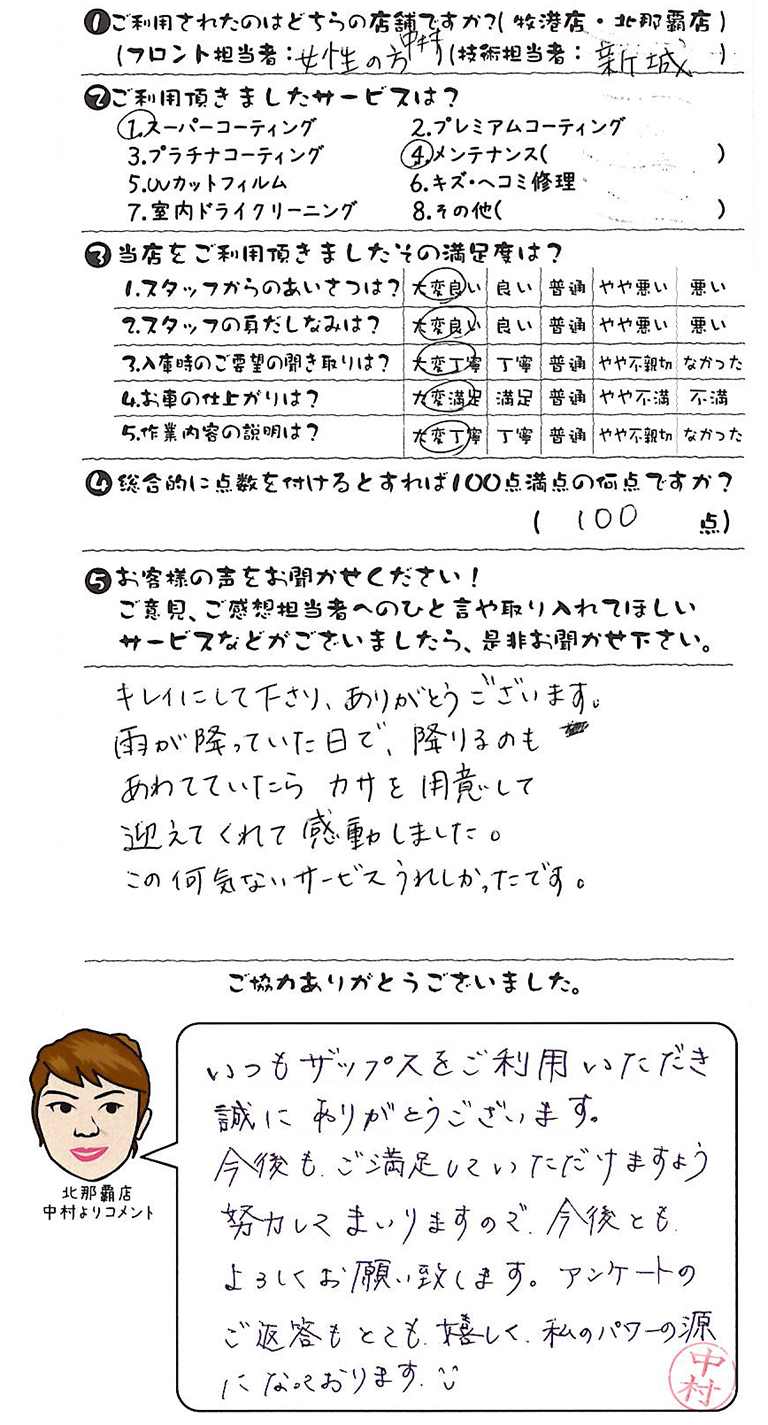 ❶ご利用されたのはどちらの店舗ですか?(牧港店・北那覇店)
(フロント担当者:女性の方 中村)(技術担当者:新城)
❷ご利用頂きましたサービスは?
1.スーパーコーティング 2.プレミアムコーティング
3.プラチナコーティング 4.メンテナンス( )
5.UVカットフィルム 6.キズ・ヘコミ修理
7.室内ドライクリーニング 8.その他( )
❸当店をご利用頂きましたその満足度は?
1.スタッフからのあいさつは? 大変良い 良い 普通 やや悪い 悪い
2.スタッフの身だしなみは? 大変良い 良い 普通 やや悪い 悪い
3.入庫時のご要望の聞き取りは? 大変丁寧 丁寧 普通 やや不親切 なかった
4.お車の仕上がりは? 大変満足 満足 普通 やや不満 不満
5.作業内容の説明は? 大変丁寧 丁寧 普通 やや不親切 なかった
❹総合的に点数を付けるとすれば100点満点の何点ですか?
( 100 点)
❺お客様の声をお聞かせください!
ご意見、ご感想担当者へのひと言や取り入れてほしい
サービスなどがございましたら、是非お聞かせ下さい。
キレイにして下さり、ありがとうございます。
雨が降っていた日で、降りるのも
あわてていたら カサを用意して
迎えてくれて感動しました。
この何気ないサービスうれしかったです。
ご協力ありがとうございました。
いつもザップスをご利用いただき
誠にありがとうございます。
今後も、ご満足していただけますよう
努力してまいりますので、今後とも、
よろしくお願い致します。アンケートの
ご返答もとても、嬉しく、私のパワーの源
になっております。
中村
北那覇店
中村よりコメント